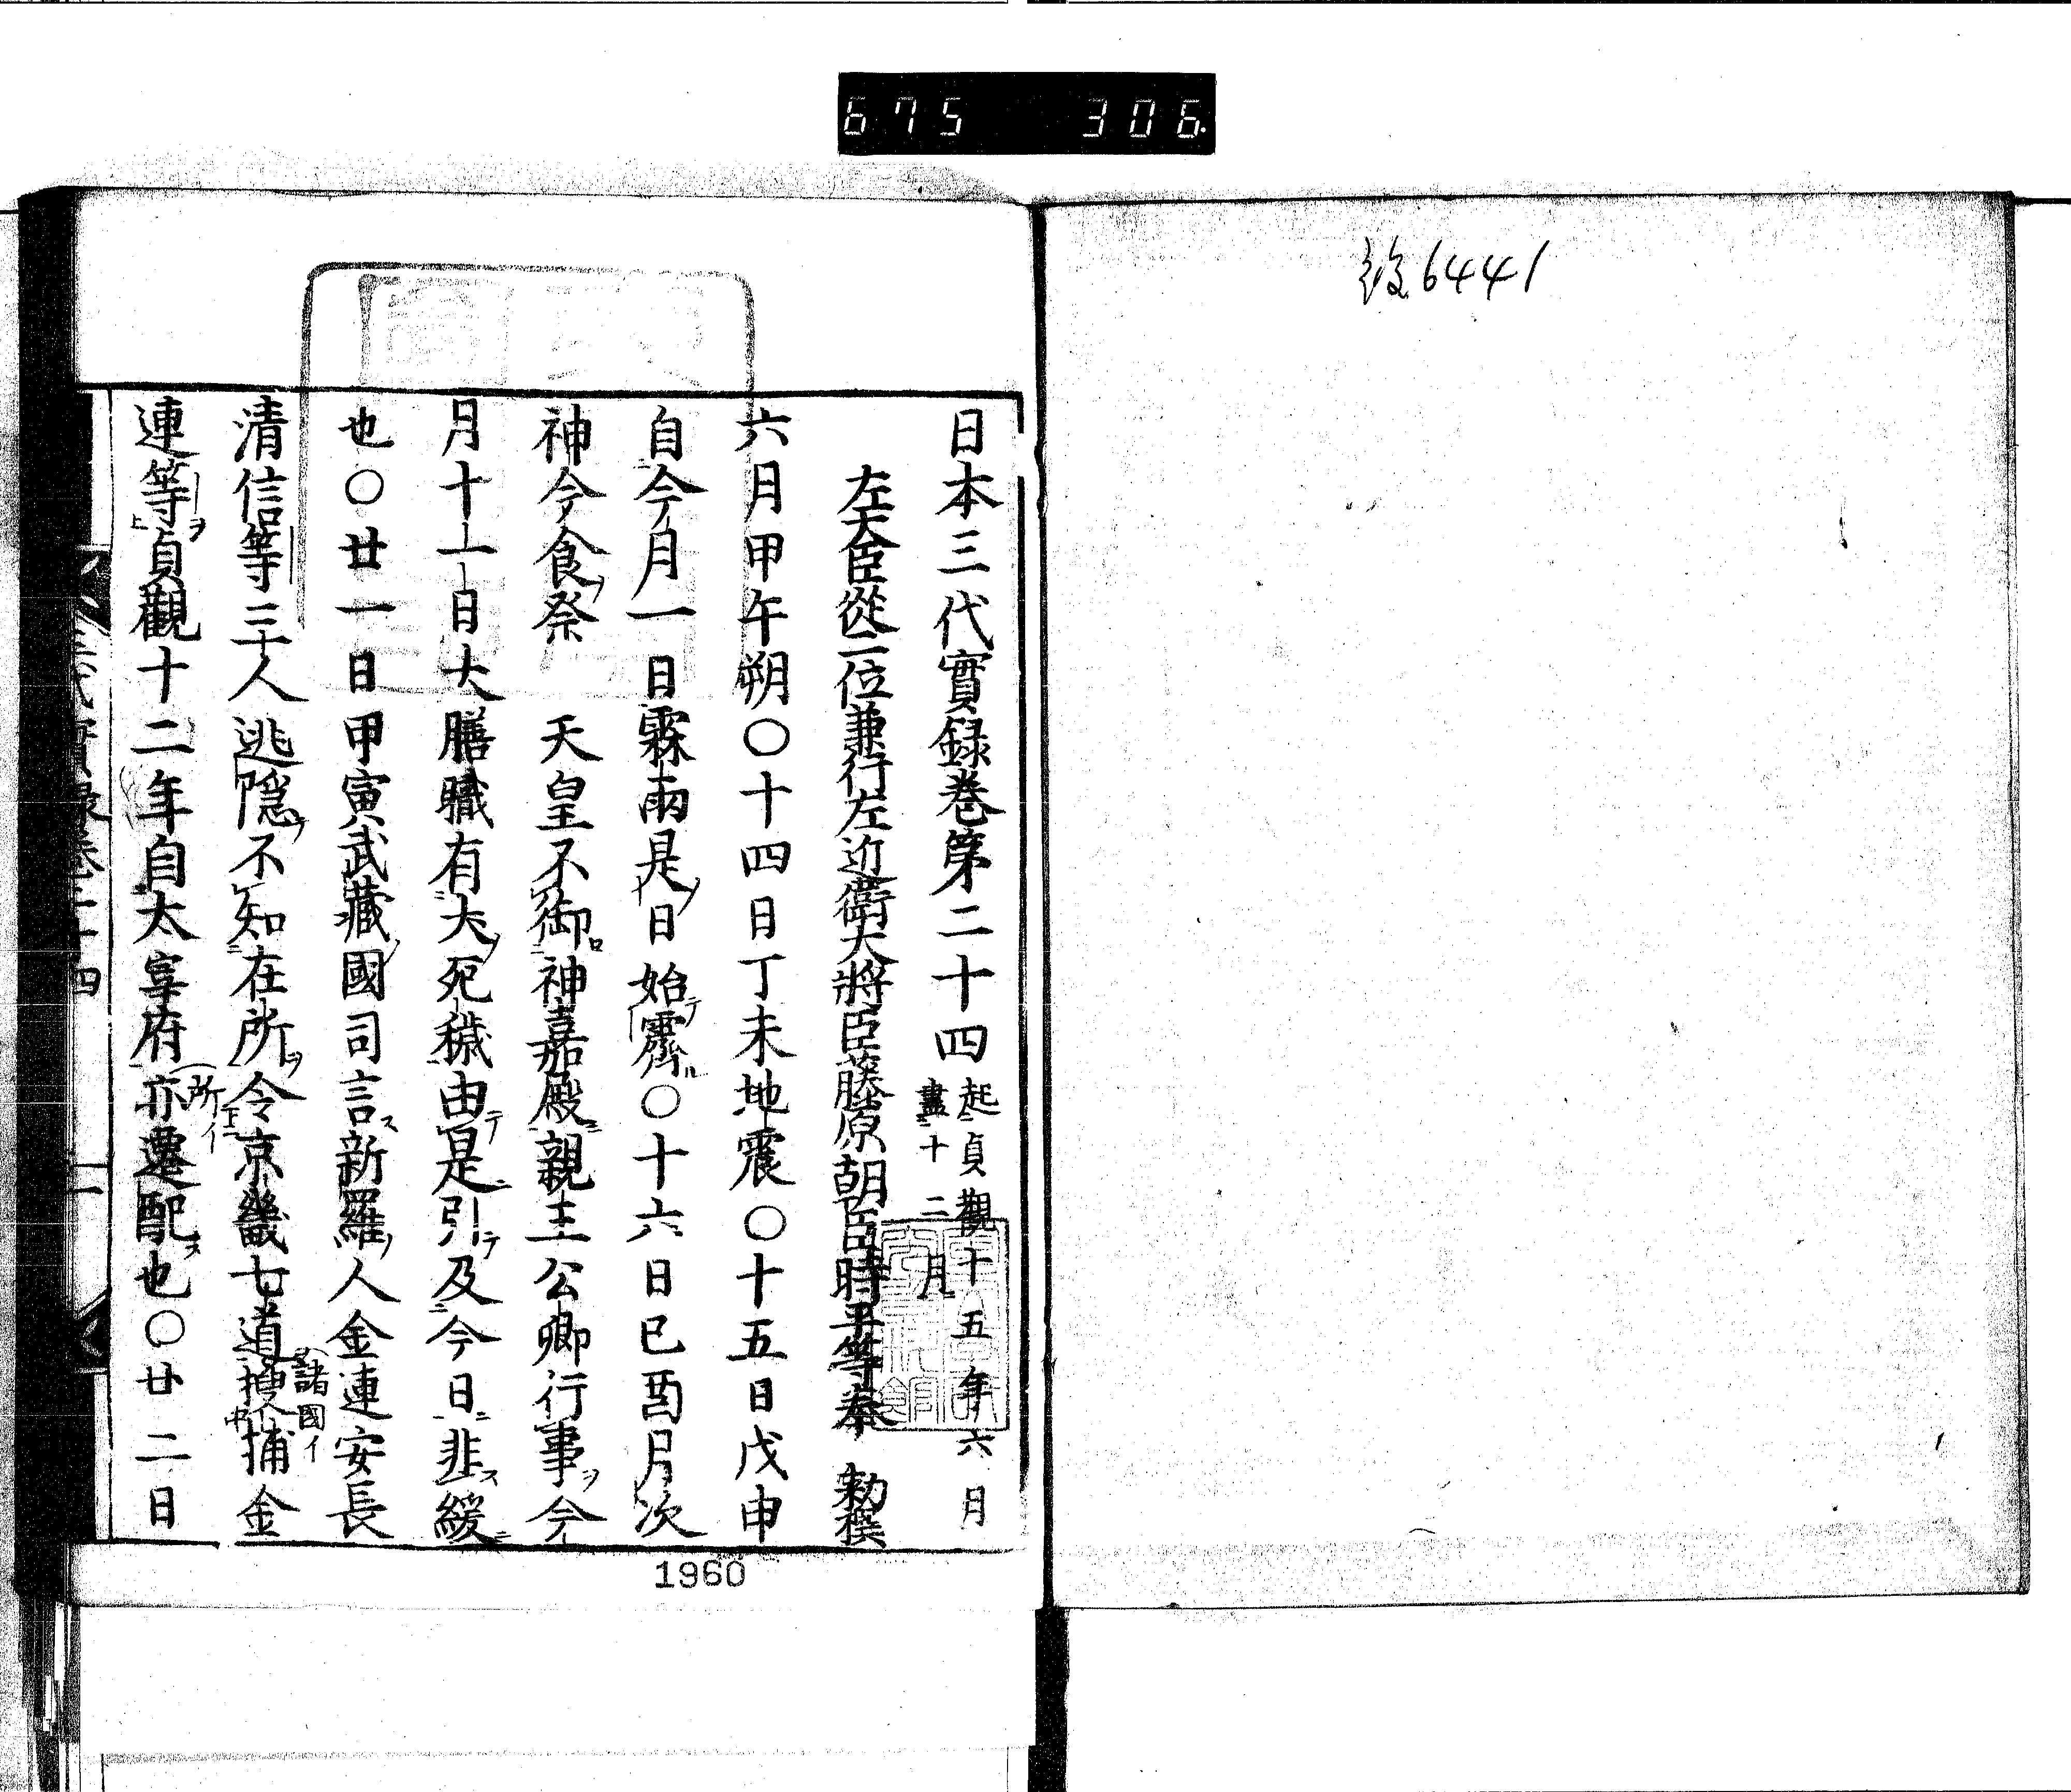 675 306.
6441
日本三代實錄卷第二十四 起貞觀十五年六月
盡十二月
左大臣從二位兼行左近衛大將臣藤原朝臣時平等奉 勅撰
六月甲午朔〇十四日丁未地震〇十五日戊申
自今月一日霖雨是日始霽〇十六日己酉月次
神今食祭 天皇不御神嘉殿親王公卿行事今
月十一日大膳職有犬死穢由是引及今日韭緩
也〇廿一日甲寅武藏國司言新羅人金連安長
清信等三人逃隱不知在所令京畿七道捜捕金
諸國イ
連等貞觀十二年自太宰府亦遷配也〇廿二日
所イ
三代實錄卷二十四 一
1960